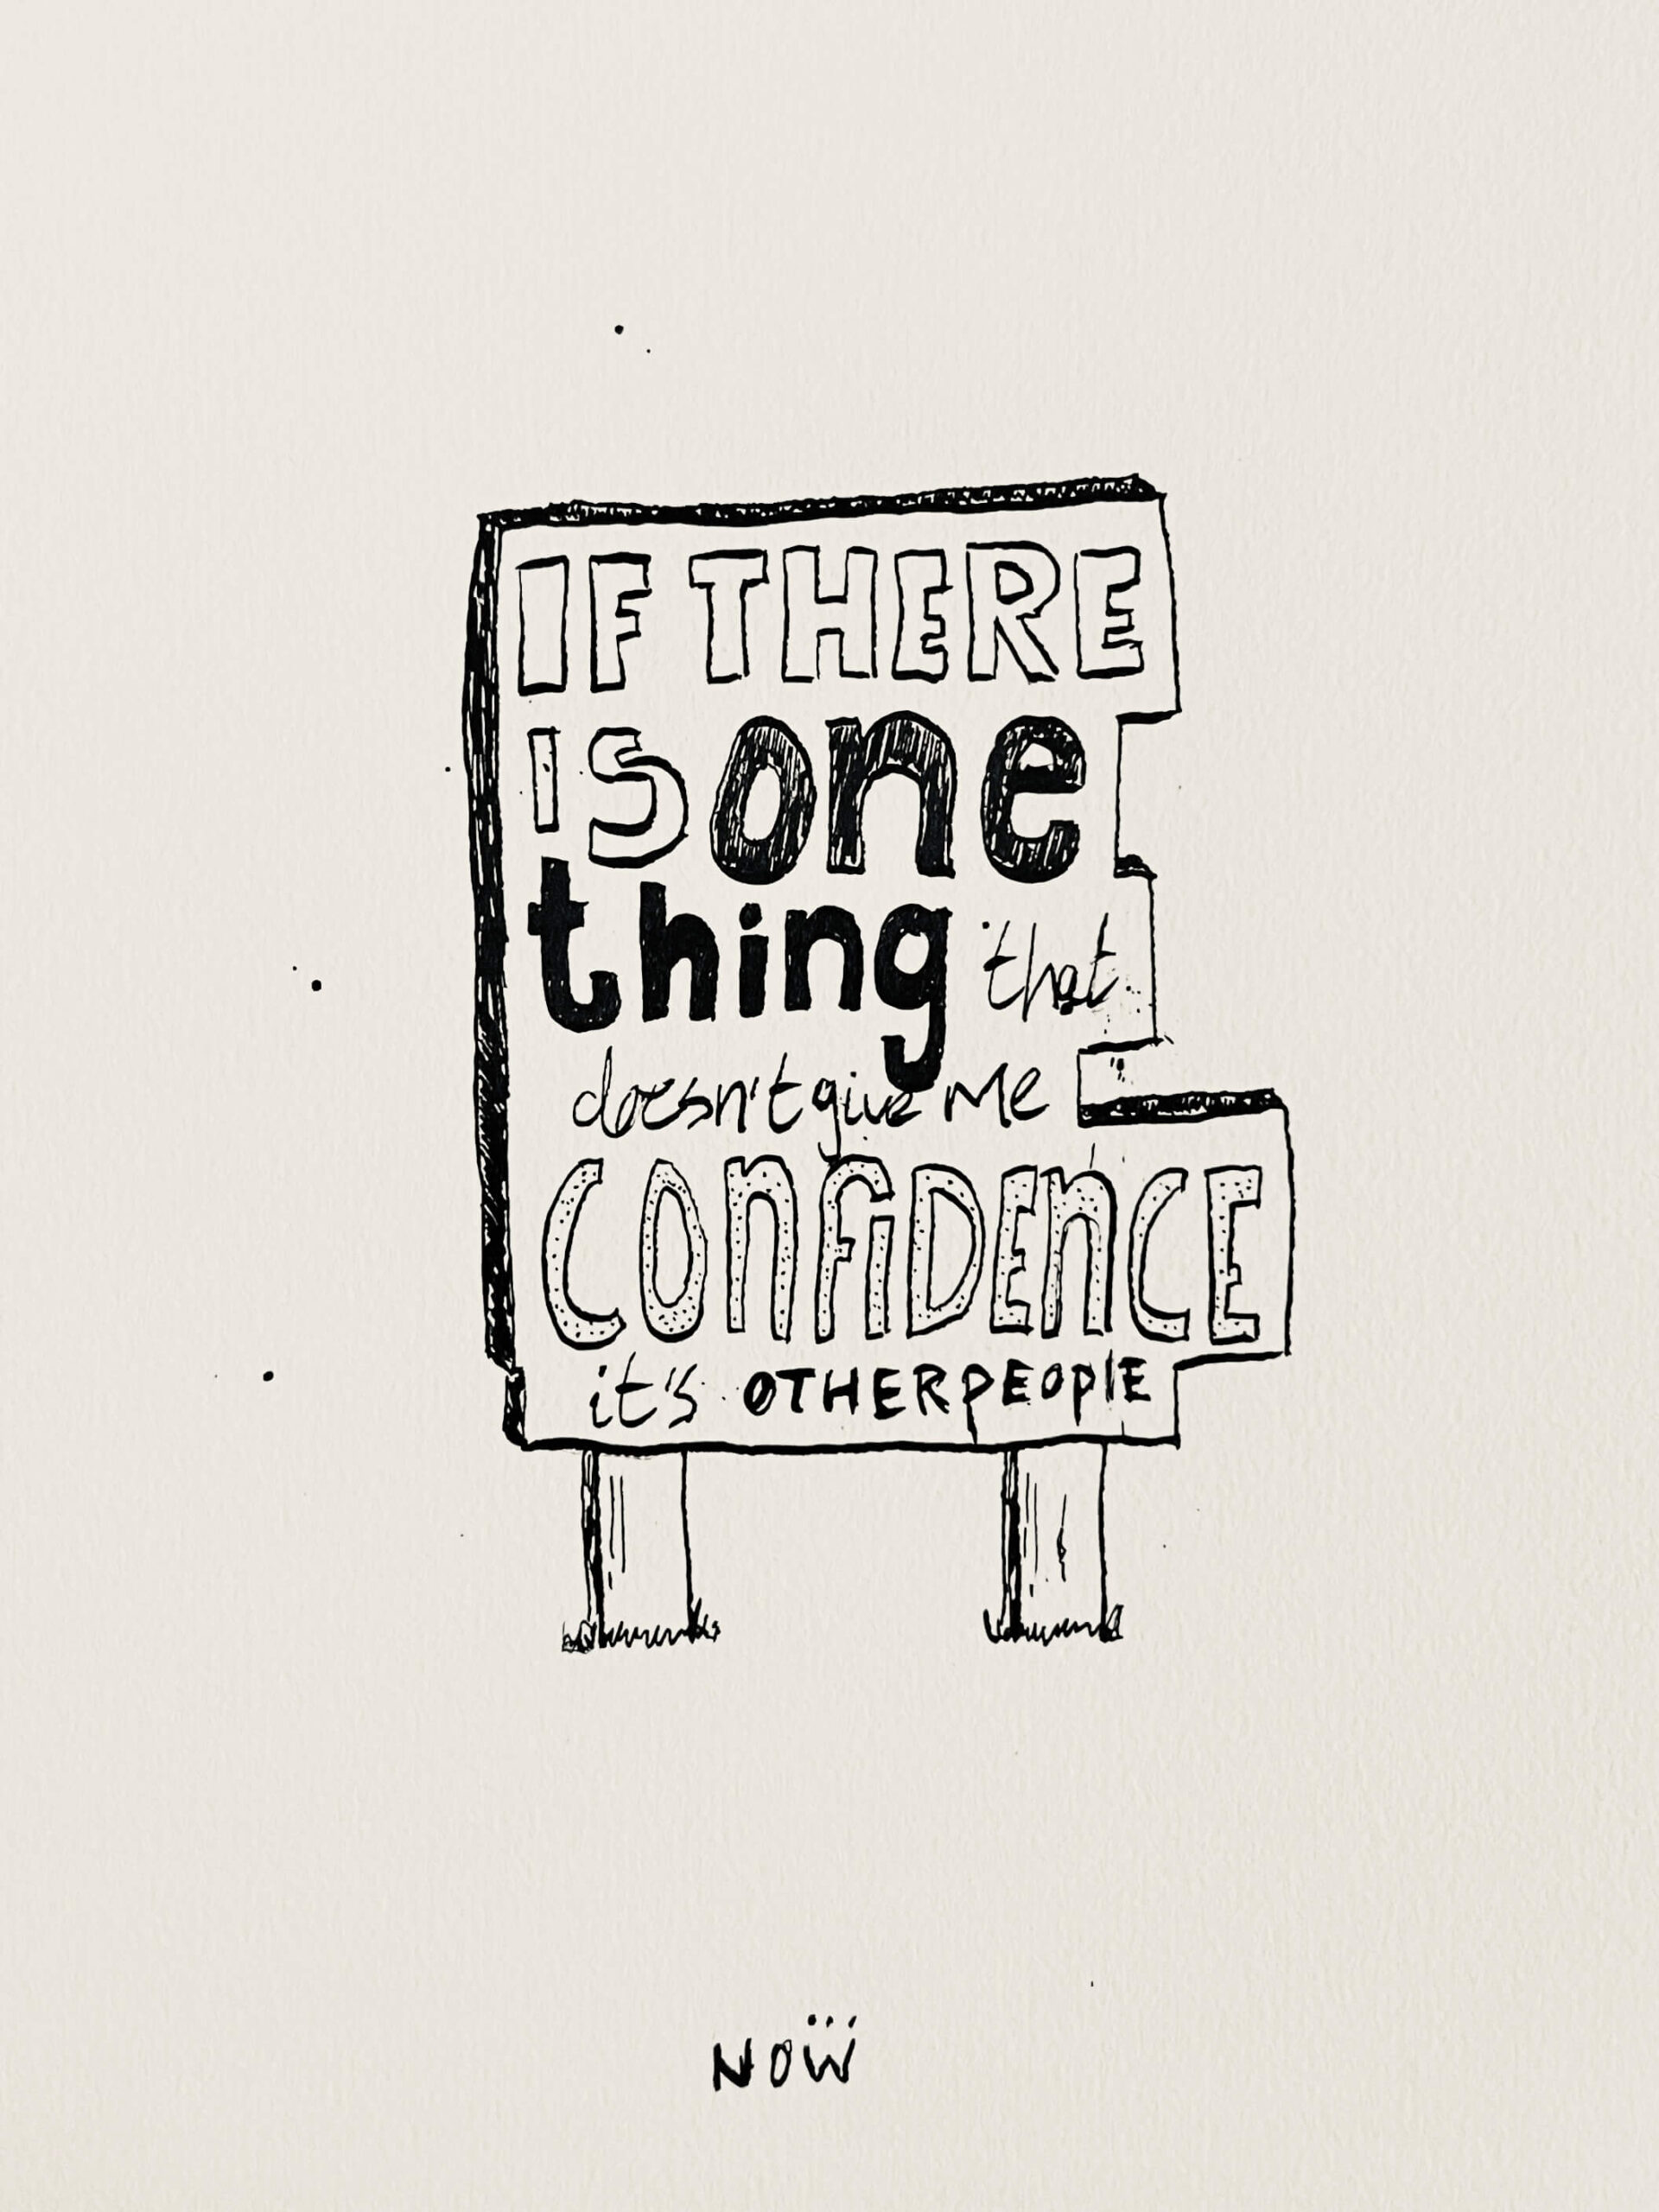 IF THERE
IS one
thing that
doesn't give me
CONFIDENCE
it's OTHER PEOPLE
NOẄ